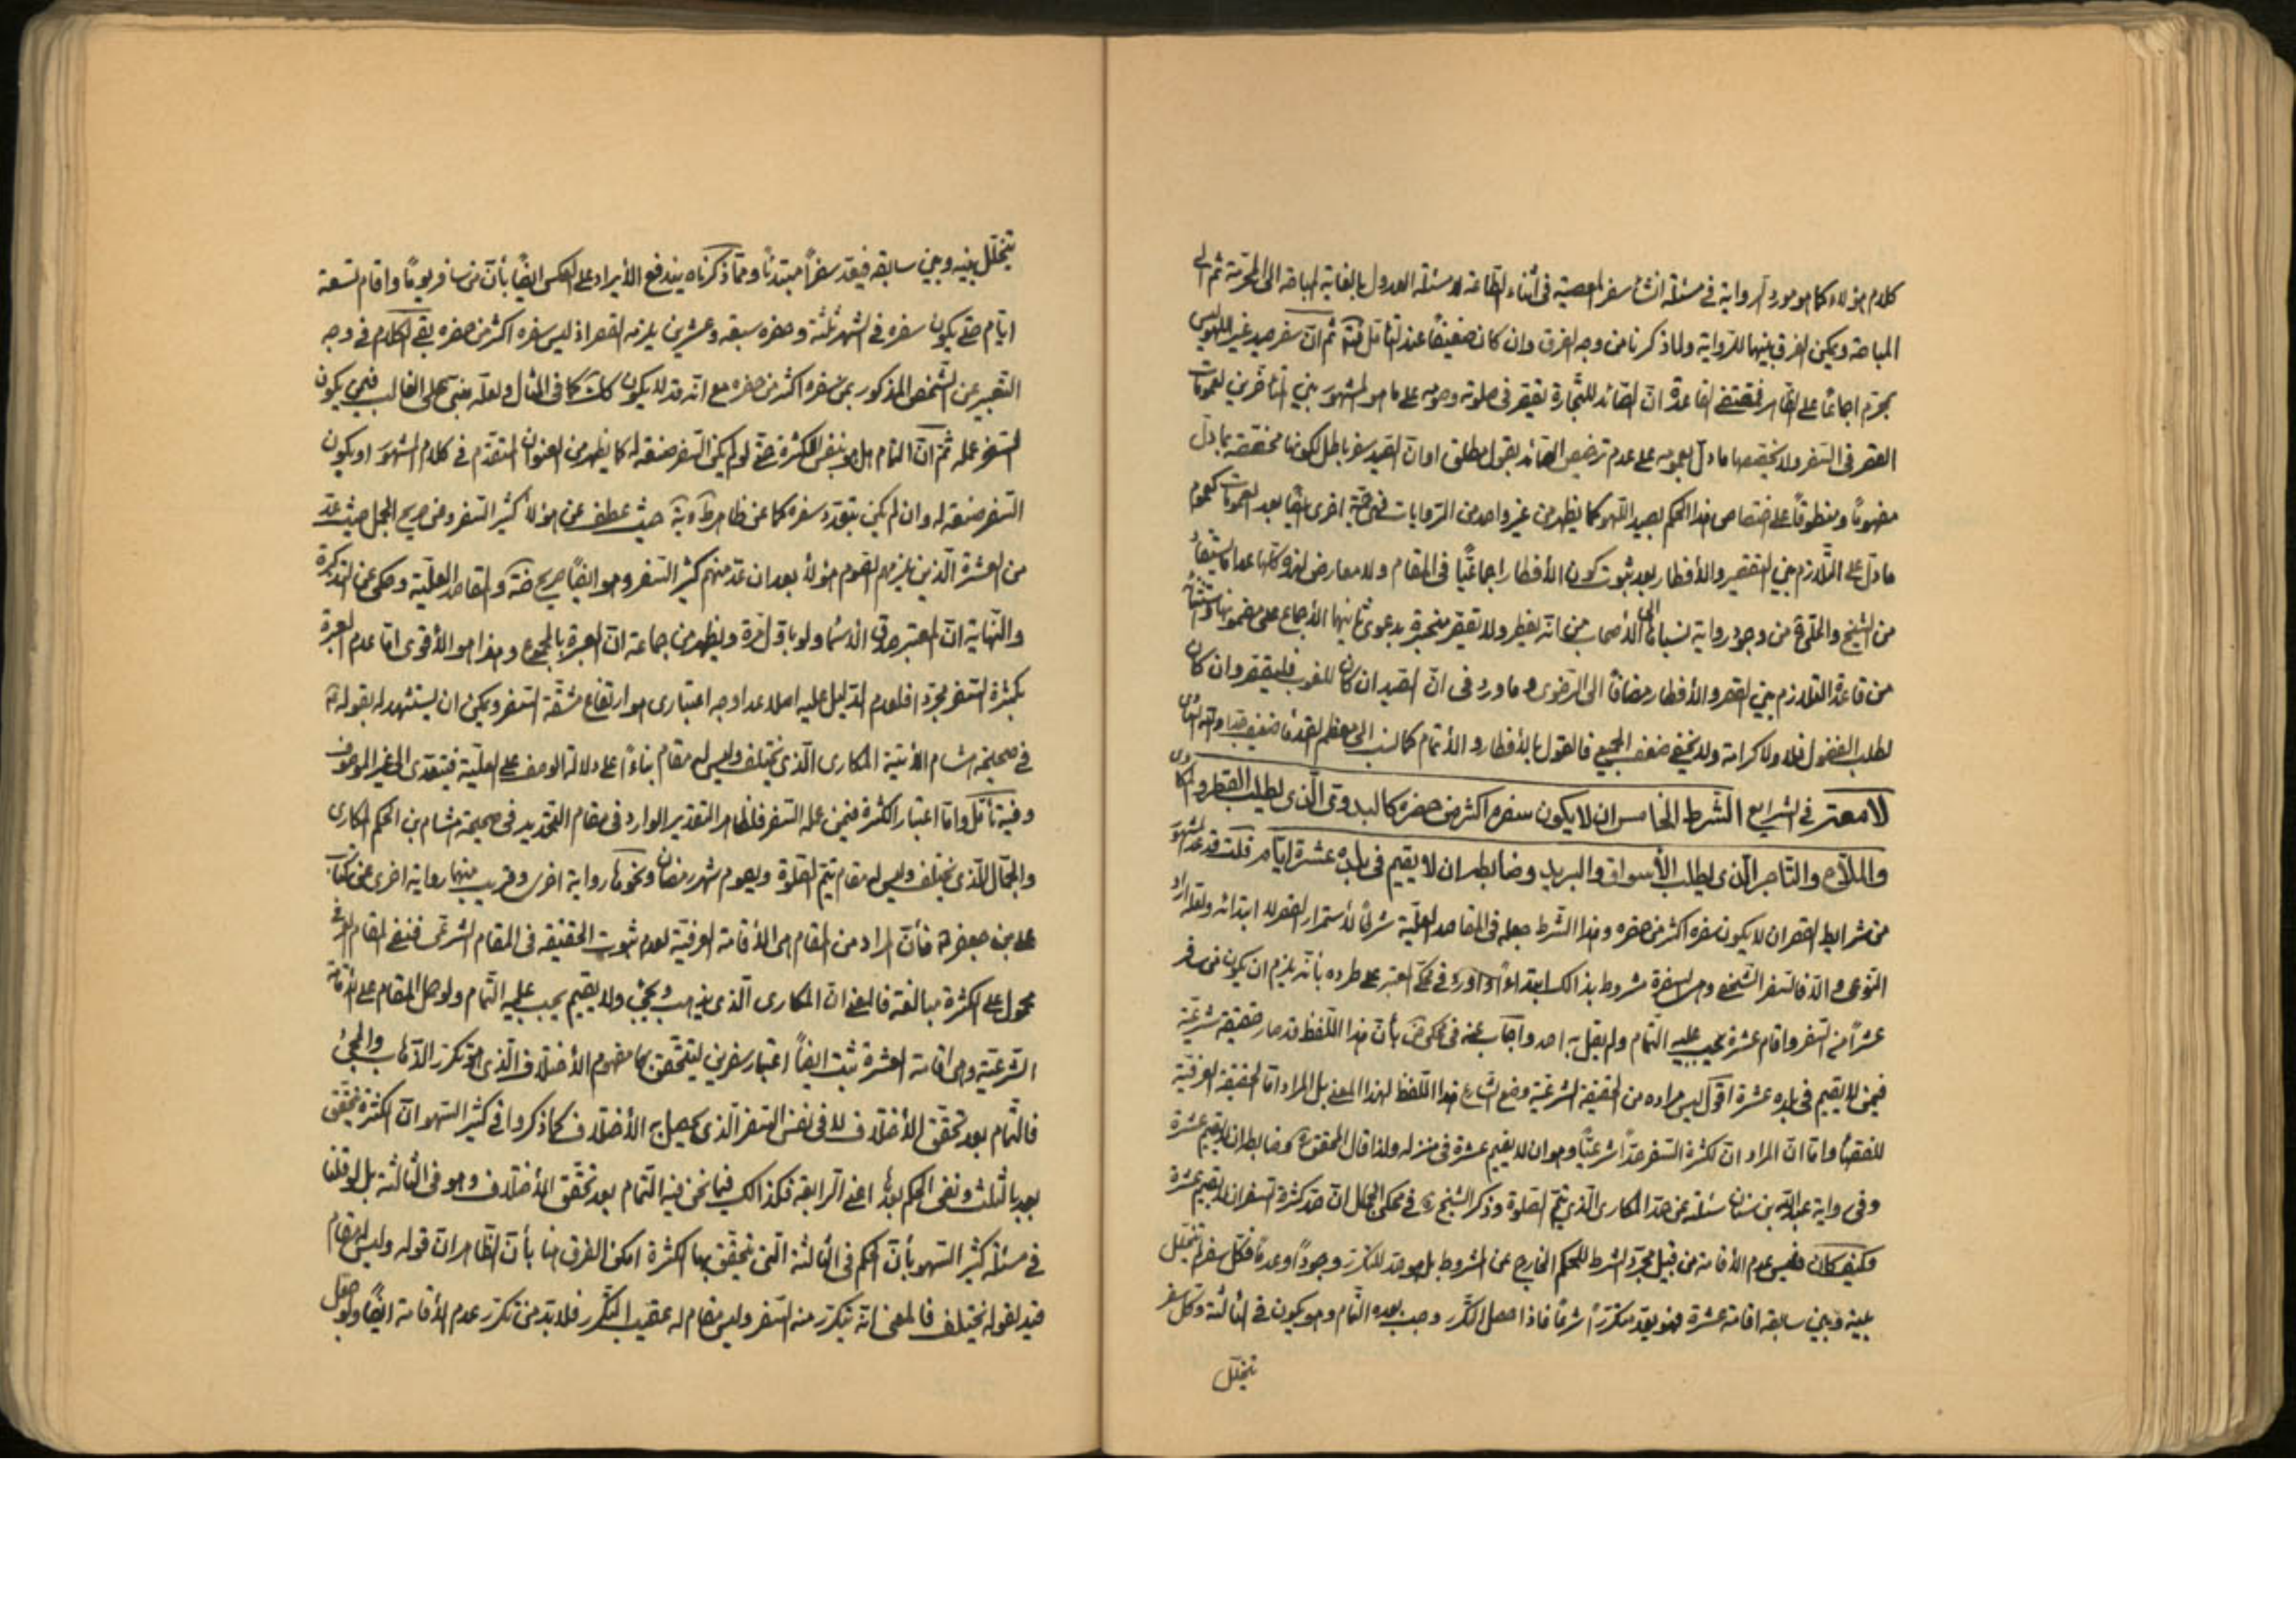 كلام هؤلاء كما هو مورد الرواية في مسئلة انشاء سفر المعصية في اثناء الطاعة لا مسئلة العدول بالغاية المباحة الى المحرمة ثم الى
المباحة ويمكن الفرق بينهما للرواية ولما ذكرنا من وجه الفرق وان كان ضعيفاً عند التأمل فتأمل ثم ان سفر صيد غير اللهو ليس
بمحرم اجماعاً على الظاهر فمقتضى القاعدة ان الصائد للتجارة يقصر في صلوته وصومه على ما هو المشهور بين المتأخرين لعمومات
القصر في السفر ولا يخصصها ما دل بعمومه على عدم ترخيص الصائد بقول مطلق او ان الصيد سفر باطل لكونها مخصصة بما دل
مفهوماً ومنطوقاً على اختصاص هذا الحكم بصيد اللهو كما يظهر من غير واحد من الروايات فهي حجة اخرى ايضاً بعد العمومات كعموم
ما دل على التلازم بين التقصير والأفطار بعد ثبوت كون الأفطار اجماعيّاً في المقام ولا معارض لهذه كلها عدا ما يستفاد
من الشيخ والحلي من وجود رواية نسباها الى الأصحاب من انه يفطر ولا يقصر منجبرة بدعوى ثانيهما الأجماع على مضمونها واستثنائه
من قاعدة التلازم بين القصر والأفطار مضافاً الى الرضوى وما ورد في ان الصيد ان كان للقوت فليقصر وان كان
لطلب الفضول فلا ولا كرامة ولا يخفى ضعف الجميع فالقول بالأفطار والأتمام كما نسب الى معظم القدماء ضعيف جداً والله الهادى
لا معتبر في الشرايع الشرط الخامس ان لا يكون سفره اكثر من حضره كالبدوي الذى يطلب القطر والمكارى
والملاح والتاجر الذى يطلب الأسواق والبريد وضابطه ان لا يقيم في بلده عشرة ايام قلت قد عد المشهور
من شرايط القصر ان لا يكون سفره اكثر من حضره وهذا الشرط جعله في المقاصد العلية شرطاً لأستمرار القصر لا ابتدائه ولعله اراد
النوعى والا فالسفر الشخصي وهي السفرة مشروط بذالك ابتداءً واورد في محكى المعتبر على طرده بأنه يلزم ان يكون من سافر
عشراً من السفر واقام عشرة يجب عليه التمام ولم يقل به احد واجاب عنه في محكى ض بأن هذا اللفظ قد صار حقيقة شرعية
فيمن لا يقيم في بلده عشرة اقول ليس مراده من الحقيقة الشرعية وضع الشارع هذا اللفظ لهذا المعنى بل المراد اما الحقيقة العرفية
للفقهاء واما ان المراد ان لكثرة السفر حدّاً شرعيّاً وهو ان لا يقيم عشرة في منزله ولذا قال المحقق وضابطه ان لا يقيم عشرة
وفي رواية عبد الله بن سنان سئلته عن حد المكارى الذي يتم الصلوة وذكر الشيخ ره في محكى الجمل ان حد كثرة السفر ان لا يقيم عشرة
وكيف كان فليس عدم الأقامة من قبيل مجرد الشرط للحكم الخارج عن المشروط بل هو حد للتكرر وجوداً وعدماً فكل سفر لم يتخلل
بينه وبين سابقه اقامة عشرة فهو يعد متكرراً شرعاً فاذا حصل التكرر وجب بعده التمام وهو يكون في الثالثة وكل سفر
يتخلل
يتخلل بينه وبين سابقه فيعد سفراً مبتدئاً ومما ذكرناه يندفع الأيراد على العكس ايضاً بأن من سافر يوماً واقام تسعة
ايام حتى يكون سفره في الشهر ثلثة وحضره سبعة وعشرين يلزمه القصر اذ ليس سفره اكثر من حضره بقي الكلام في وجه
التعبير عن الشخص المذكور بمن سفره اكثر من حضره مع انه قد لا يكون كك كما في المثال ولعله مبنى على الغالب فيمن يكون
السفر عمله ثم ان التمام هل هو بنفس الكثرة حتى لو لم يكن السفر صنعة له كما يظهر من العنوان المتقدم في كلام المشهور او بكون
السفر صنعة له وان لم يكن يتعدد سفره كما عن ظاهر حيث عطف عن هؤلاء كثير السفر ومن صريح الجمل حيث عد
من العشرة الذين يلزمهم الصوم هؤلاء بعد ان عد منهم كثير السفر وهو ايضاً صريح ضه والمقاصد العلية وحكى عن التذكرة
والنهاية ان المعتبر صدق الاسماء ولو باول مرة ويظهر من جماعة ان العبرة بالمجموع وهذا هو الأقوى اما عدم العبرة
بكثرة السفر مجرداً فلعدم الدليل عليه اصلا عدا وجه اعتبارى هو ارتفاع مشقة السفر ويمكن ان يستشهد له بقوله
في صحيحة هشام الأتية المكارى الذى يختلف وليس له مقام بناءً على دلالة الوصف على العلية فيتعدى الى غير الموصوف
وفيه تأمل واما اعتبار الكثرة فيمن عمله السفر فلظاهر التقدير الوارد في مقام التحديد في صحيحة هشام بن الحكم المكارى
والجمال الذى يختلف وليس له مقام يتم الصلوة ويصوم شهر رمضان ونحوها رواية اخرى وقريب منهما رواية اخرى عن كتاب
على بن جعفر فأن المراد من المقام هي الأقامة العرفية لعدم ثبوت الحقيقة في المقام الشرعي فنفي المقام العرفي
محمول على الكثرة مبالغة فالمعنى ان المكارى الذى يذهب ويجئ ولا يقيم يجب عليه التمام ولو حمل المقام على الأقامة
الشرعية وهي اقامة العشرة ثبت ايضاً اعتبار سفرين ليتحقق بهما مفهوم الأختلاف الذى هو تكرر الذهاب والمجئ
فالتمام بعد تحقق الأختلاف لا في نفس السفر الذى يحصل به الأختلاف كما ذكروا في كثير السهو ان الكثرة يتحقق
بعد الثلث ونفي الحكم بعدها اعنى الرابعة فكذالك فيما نحن فيه التمام بعد تحقق الأختلاف وهو في الثالثة بل لو قلنا
في مسئلة كثير السهو بأن الحكم في الثالثة التى يتحقق بها الكثرة امكن الفرق هنا بأن الظاهر ان قوله وليس له مقام
قيد لقوله يختلف فالمعنى انه يتكرر منه السفر وليس مقام له عقيب التكرر فلا بد من تكرر عدم الأقامة ايضاً ولو جعل